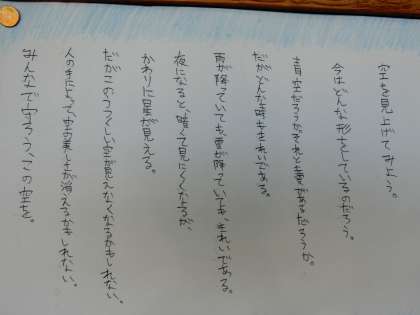 空を見上げてみよう。
今はどんな形をしているのだろう。
青空だろうかそれとも雲があるだろうか。
だがどんな時もきれいである。
雨が降っていても、雪が降っていても、きれいである。
夜になると、暗くて見にくくなるが、
かわりに星が見える。
だがこのうつくしい空が見えなくなるかもしれない。
人の手によって、空の美しさが消えるかもしれない。
みんなで守ろう、この空を。